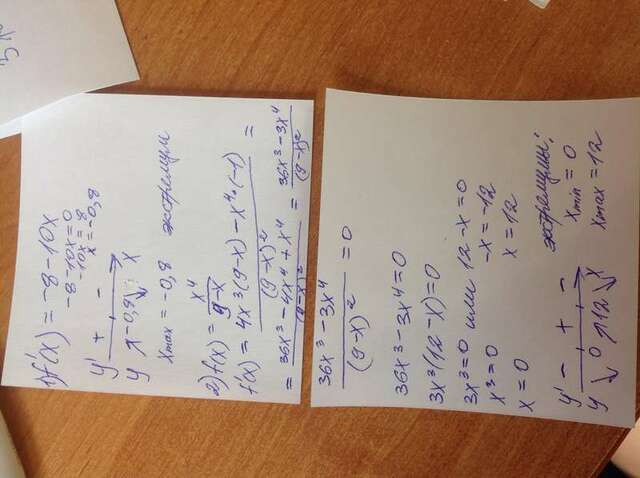 1) f'(x) = -8-10x
-8-10x=0
-10x=8
x=-0,8
y' + -
y ↗ -0,8 ↘ x
xmax = -0,8 экстремум
2) f(x) = x⁴/(9-x)
f'(x) = (4x³(9-x) - x⁴·(-1))/(9-x)² =
= (36x³-4x⁴+x⁴)/(9-x)² = (36x³-3x⁴)/(9-x)²
(36x³-3x⁴)/(9-x)² = 0
36x³-3x⁴=0
3x³(12-x)=0
3x³=0 или 12-x=0
x³=0 -x=-12
x=0 x=12
y' - + -
y ↘ 0 ↗ 12 ↘ x
экстремумы:
xmin = 0
xmax = 12